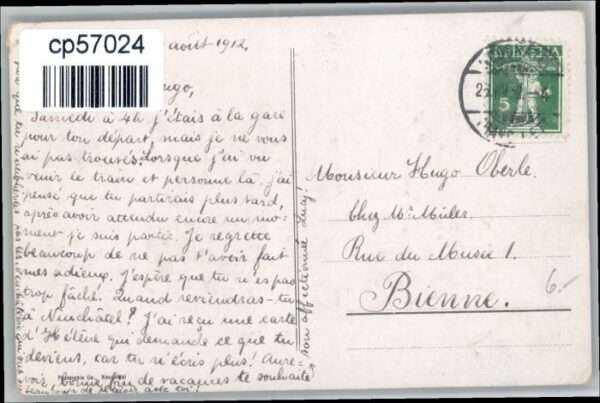 cp57024
août 1912,
Hugo,
Samedi à 4h j'étais à la gare
pour ton départ, mais je ne vous
ai pas trouvés. Lorsque j'ai vu
venir le train et personne là j'ai
pensé que tu partirais plus tard,
après avoir attendu encore un mo-
ment je suis partie. Je regrette
beaucoup de ne pas t'avoir fait
mes adieux. J'espère que tu n'es pas
trop fâché. Quand reviendras-tu
à Neuchâtel? J'ai reçu une carte
d'Hélène qui demande ce que tu
deviens, car tu n'écris plus! Aure-
voir, bonne fin de vacances te souhaite
ton affectionnée Lucy!
HELVETIA
5
Monsieur Hugo Oberle.
Chez Mr Müler.
Rue du Musée 1.
Bienne.
6.-